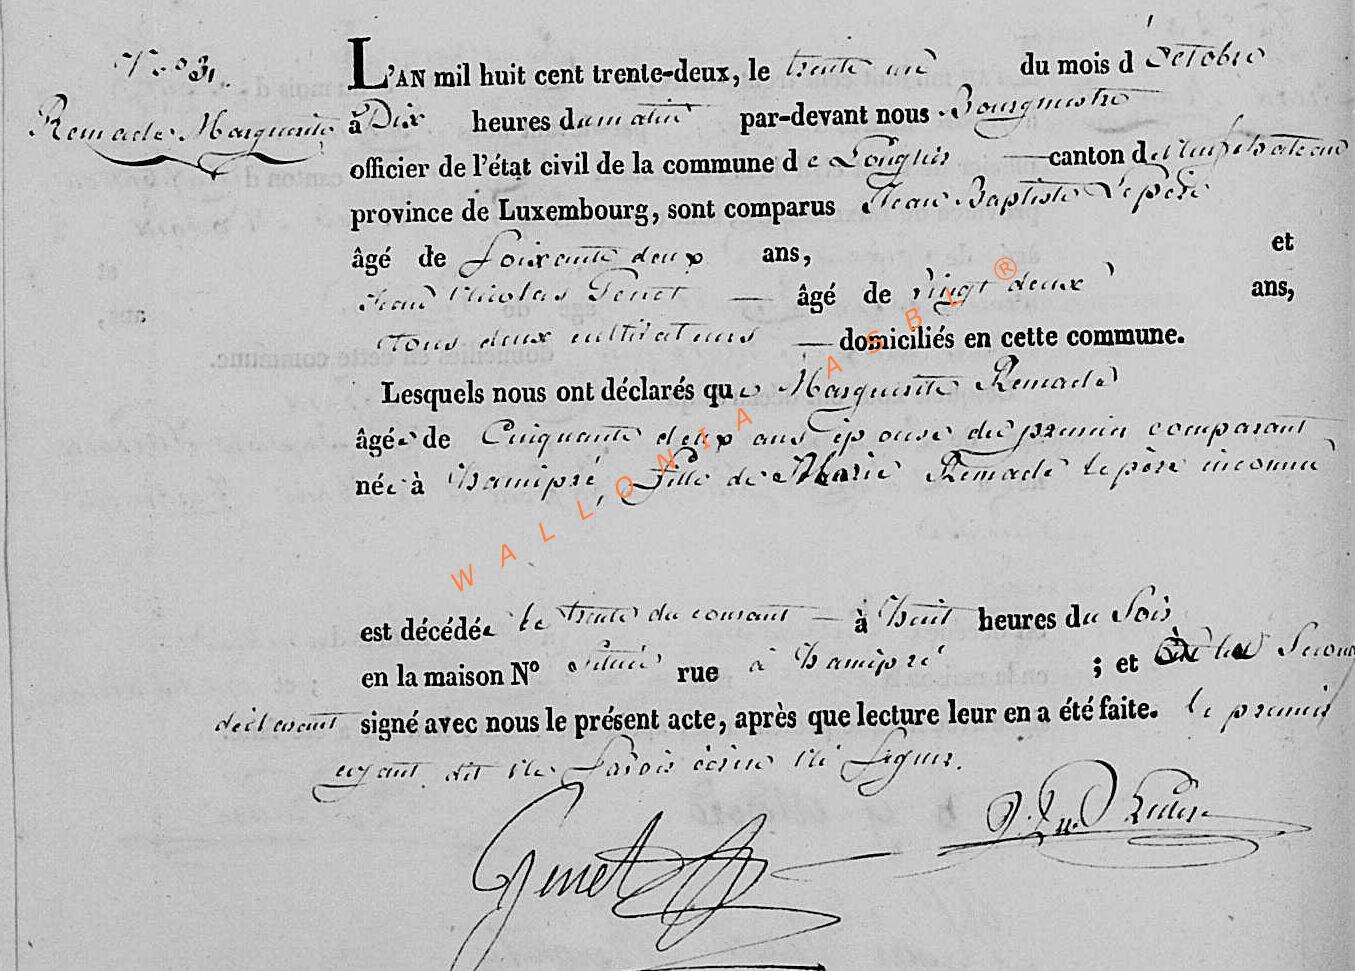 N.º 31.
Remacle Marguerite
L'AN mil huit cent trente-deux, le trente un du mois d'Octobre
à Dix heures du matin par-devant nous Bourgmestre
officier de l'état civil de la commune de Longlier canton de Neufchateau
province de Luxembourg, sont comparus Jean Baptiste Lepere
âgé de Soixante deux ans, et
Jean Nicolas Genet âgé de vingt deux ans,
tous deux cultivateurs domiciliés en cette commune.
Lesquels nous ont déclarés que Marguerite Remacle
âgée de Cinquante deux ans épouse du premier comparant
née à hamipré, fille de Marie Remacle le père inconnu
est décédée le trente du courant à huit heures du Soir
en la maison Nº située rue à hamipré ; et le Second
déclarant signé avec nous le présent acte, après que lecture leur en a été faite. le premier
ayant dit ne Savoir écrire ni Signer.
Genet
WALLONIA ASBL ®